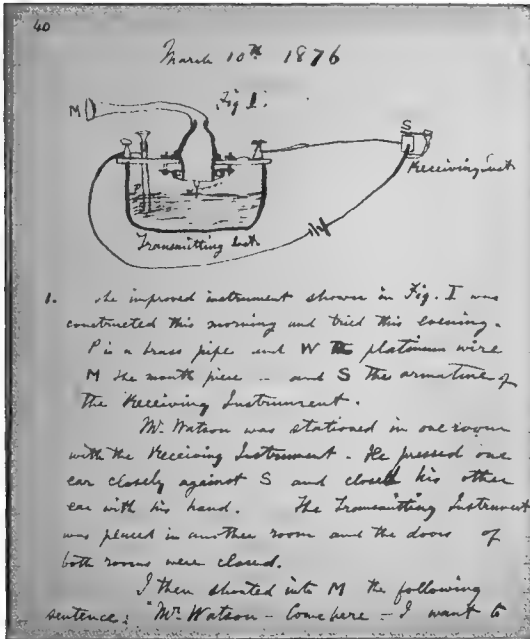 40
March 10th 1876
Fig I.
M
S
Receiving Inst
P
Transmitting Inst
1. The improved instrument shown in Fig. I was
constructed this morning and tried this evening.
P is a brass pipe and W the platinum wire
M the mouth piece - and S the armature of
the Receiving Instrument.
Mr. Watson was stationed in one room
with the Receiving Instrument. He pressed one
ear closely against S and closed his other
ear with his hand. The Transmitting Instrument
was placed in another room and the doors of
both rooms were closed.
I then shouted into M the following
sentence: "Mr. Watson - Come here - I want to